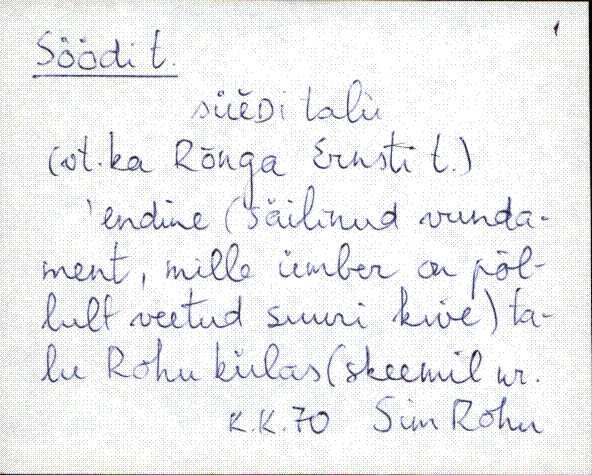 Söödi t.
süĕDi talù
(vt. ka Rõnga Ernsti t.)
'endine (säilinud vunda-
ment, mille ümber on põl-
lult veetud suuri kive) ta-
lu Rõhu külas (skeemil nr.
K.K.70 Sim Rõhu